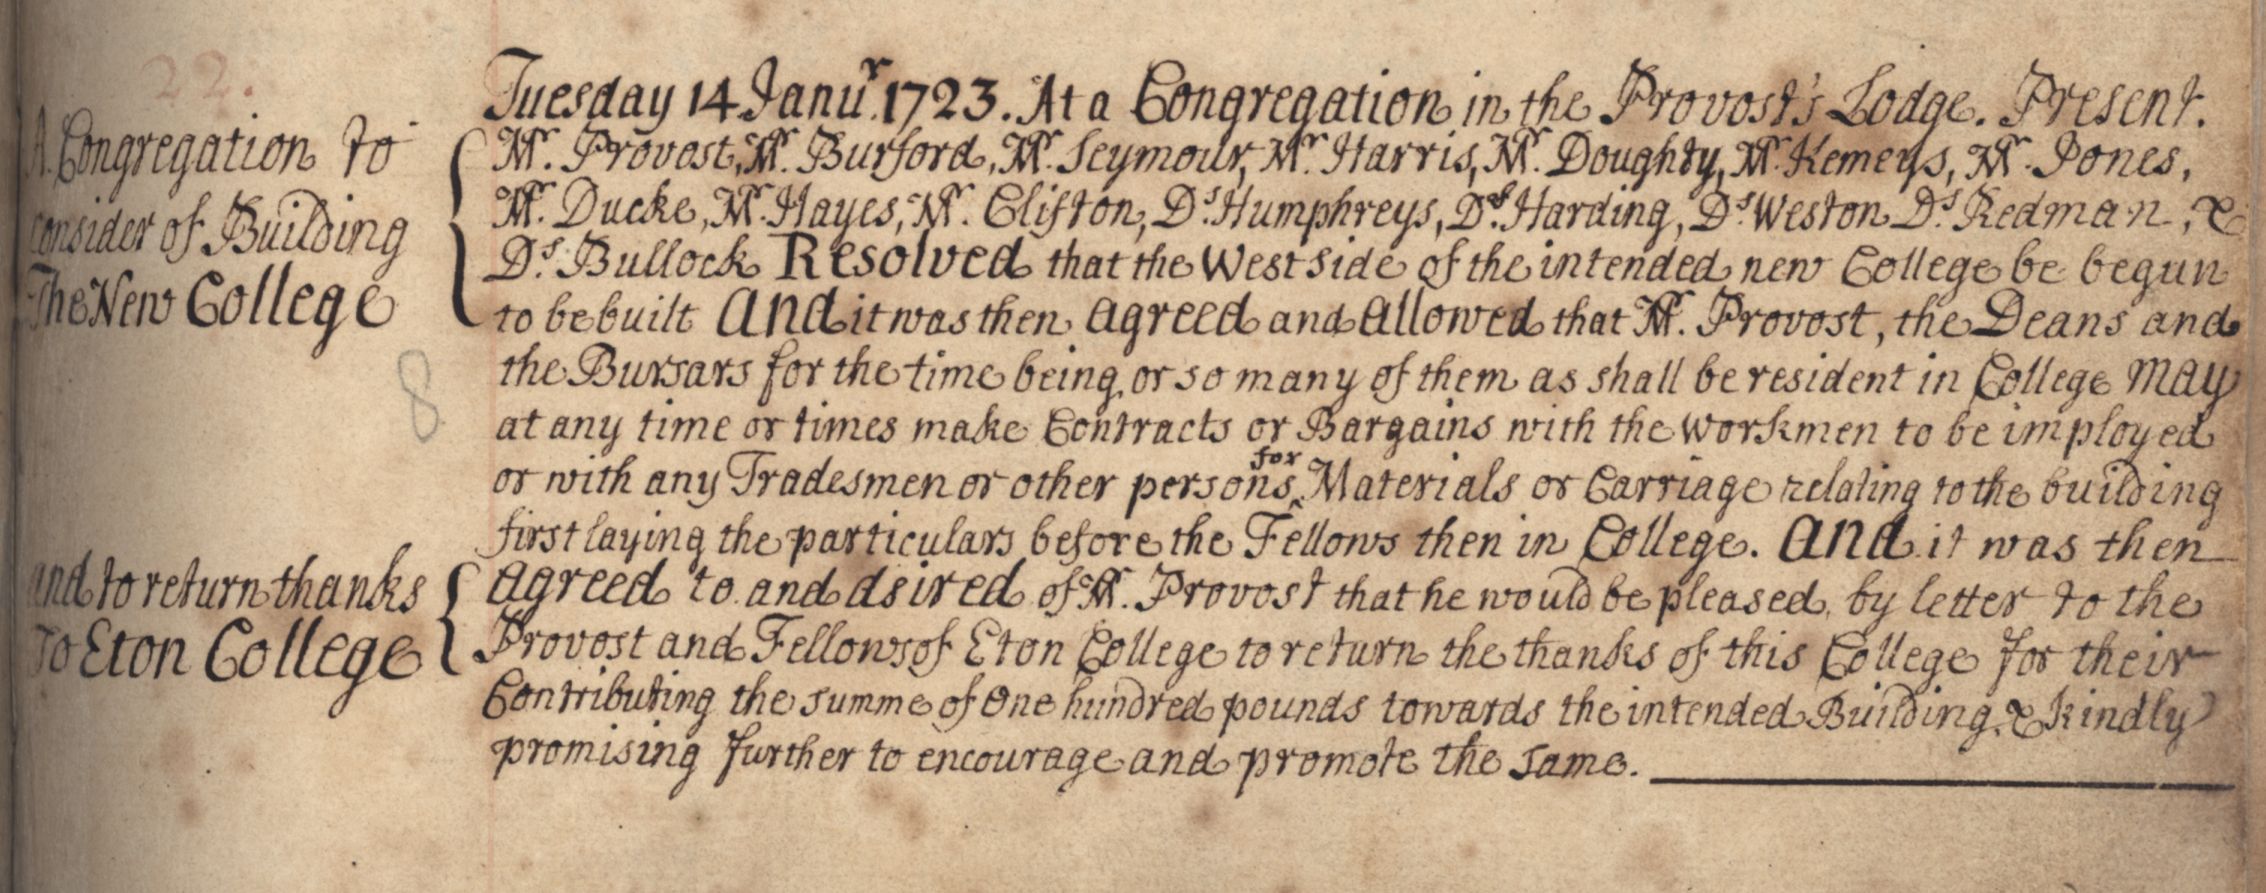 22.
Tuesday 14 Janu.r 1723. At a Congregation in the Provost's Lodge. Present.
A Congregation to
consider of Building
The New College
Mr. Provost, Mr. Burford, Mr. Seymour, Mr. Harris, Mr. Doughty, Mr. Kemeys, Mr. Jones,
Mr. Ducke, Mr. Hayes, Mr. Clifton, Ds. Humphreys, Ds. Harding, Ds Weston Ds Redman, &
Ds. Bullock Resolved that the West side of the intended new College be begun
to be built And it was then agreed and allowed that Mr. Provost, the Deans and
the Bursars for the time being, or so many of them as shall be resident in College may
8
at any time or times make Contracts or Bargains with the workmen to be imployed
or with any Tradesmen or other persons for Materials or Carriage relating to the building
first laying the particulars before the Fellows then in College. And it was then
and to return thanks
To Eton College
agreed to and dsired of Mr. Provost that he would be pleased by letter to the
Provost and Fellows of Eton College to return the thanks of this College for their
Contributing the summe of One hundred pounds towards the intended Building, & kindly
promising further to encourage and promote the same.